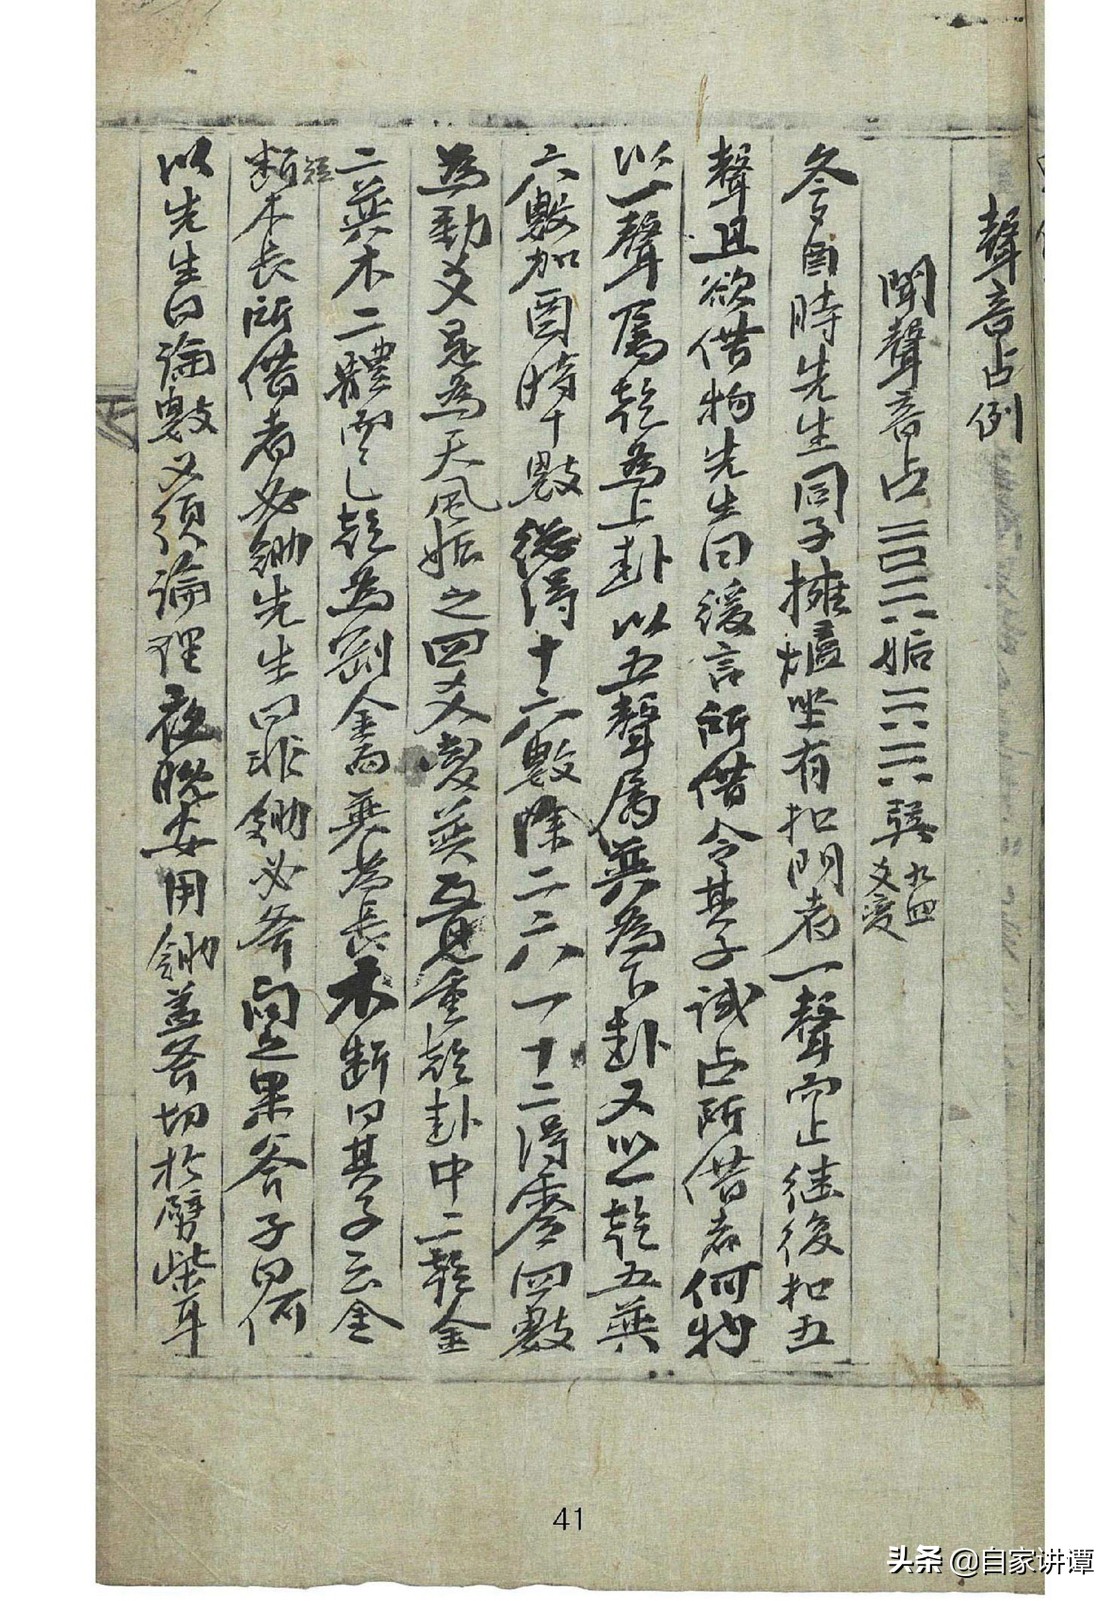 聲音占例
聞聲音占 ☰☴ 姤 ☴☴ 巽 九四爻变
冬夕酉時先生同子擁爐坐有扣門者一聲而止继後扣五
聲且欲借物先生曰緩言所借令其子试占所借者何物
以一聲属乾為上卦以五聲属巽為下卦又以一乾五巽
六數加酉時十數總得十六數除二六一十二得零四數
為動爻是為天風姤之四爻變巽互見重乾卦中二乾金
二巽木二體而已乾為剛金而巽為長木断曰其子云金
断短木長所借者必鋤先生曰非鋤必斧问之果斧子曰何
以先生曰論數必須論理夜晚安用鋤盖斧切於劈柴耳
41
头条 @自家讲谭